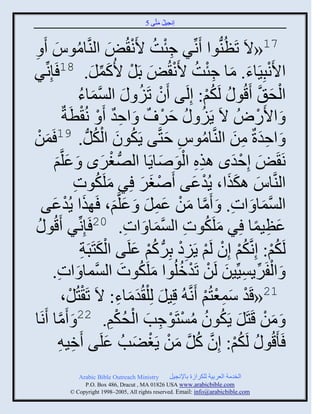 إنجيل متّى 5
17«لاَ تَظُنُّوا أَنِّي جِئْتُ لأَنْقُضَ النَّامُوسَ أَوِ
الأَنْبِيَاءَ. مَا جِئْتُ لأَنْقُضَ بَلْ لأُكَمِّلَ. 18فَإِنِّي
الْحَقَّ أَقُولُ لَكُمْ: إِلَى أَنْ تَزُولَ السَّمَاءُ
وَالأَرْضُ لاَ يَزُولُ حَرْفٌ وَاحِدٌ أَوْ نُقْطَةٌ
وَاحِدَةٌ مِنَ النَّامُوسِ حَتَّى يَكُونَ الْكُلُّ. 19فَمَنْ
نَقَضَ إِحْدَى هذِهِ الْوَصَايَا الصُّغْرَى وَعَلَّمَ
النَّاسَ هكَذَا، يُدْعَى أَصْغَرَ فِي مَلَكُوتِ
السَّمَاوَاتِ. وَأَمَّا مَنْ عَمِلَ وَعَلَّمَ، فَهذَا يُدْعَى
عَظِيمًا فِي مَلَكُوتِ السَّمَاوَاتِ. 20فَإِنِّي أَقُولُ
لَكُمْ: إِنَّكُمْ إِنْ لَمْ يَزِدْ بِرُّكُمْ عَلَى الْكَتَبَةِ
وَالْفَرِّيسِيِّينَ لَنْ تَدْخُلُوا مَلَكُوتَ السَّماوَاتِ.
21«قَدْ سَمِعْتُمْ أَنَّهُ قِيلَ لِلْقُدَمَاءِ: لاَ تَقْتُلْ،
وَمَنْ قَتَلَ يَكُونُ مُسْتَوْجِبَ الْحُكْمِ. 22وَأَمَّا أَنَا
فَأَقُولُ لَكُمْ: إِنَّ كُلَّ مَنْ يَغْضَبُ عَلَى أَخِيهِ
Arabic Bible Outreach Ministry الخدمة العربية للكرازة بالإنجيل
P.O. Box 486, Dracut , MA 01826 USA www.arabicbible.com
© Copyright 1998–2005, All rights reserved. Email: info@arabicbible.com